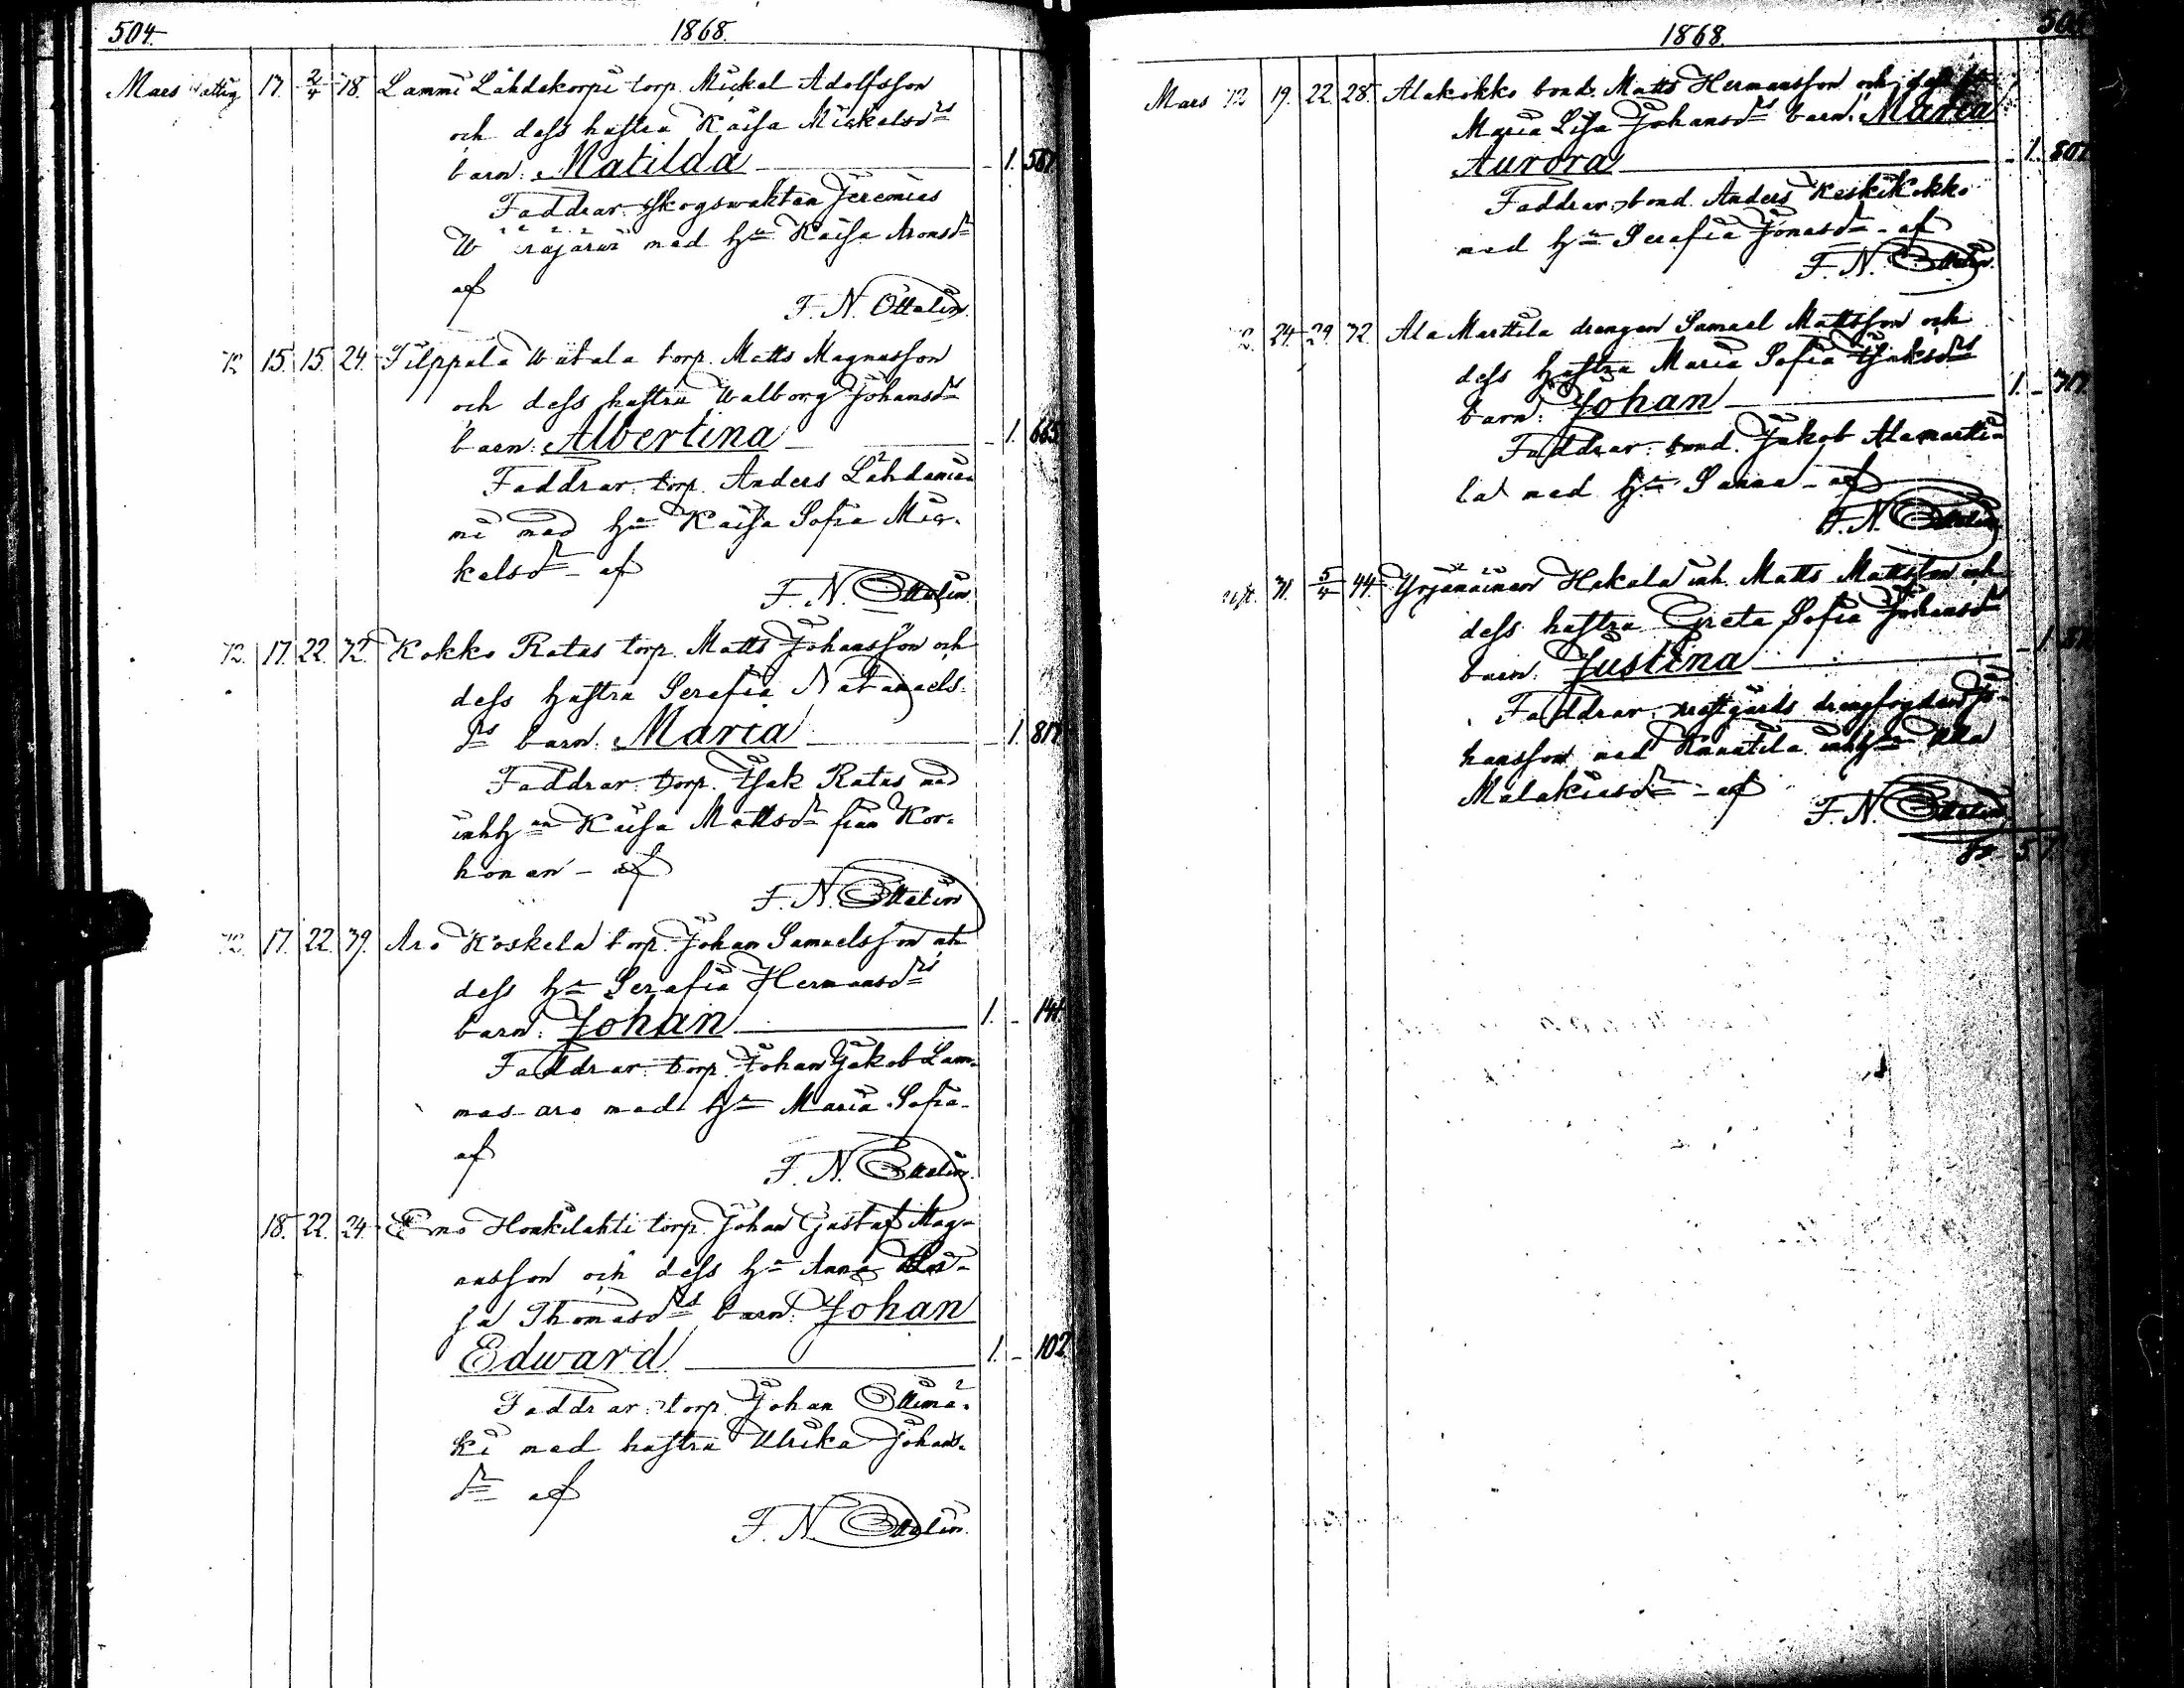 504. 1868.
Mars 17. 2/4 28. Lammi Lähdekorpi torp. Mickel Adolfsson
och dess hustru Kaisa Mickelsdrs
barn: Matilda 1. 567.
Faddrar: Skogswaktan Jeremias
med hu Kaisa Aronsdr
af
F. N. Ottelin.
72 15. 15. 24. Filppula Watala torp. Matts Magnusson
och dess hustru Walborg Johansdrs
barn: Albertina 1. 665.
Faddrar: torp. Anders Lähdenie-
mi med hu Kaisa Sofia Mic-
kelsdr - af
F. N. Ottelin.
72. 17. 22. 32. Kokko Ratas torp. Matts Johansson och
dess hustru Serafia Natanaels-
drs barn: Maria 1. 817.
Faddrar: torp. Isak Ratas med
inhy-an Kaisa Mattsdr från Kor-
honen - af
F. N. Ottelin
72. 17. 22. 39. Aro Koskela torp. Johan Samuelsson och
dess hu Serafia Hermansdrs
barn: Johan 1. 141.
Faddrar: torp. Johan Jakob Lam-
mas aro med hu Maria Sofia -
af
F. N. Ottelin.
18. 22. 24. Erno Honkilahti torp. Johan Gustaf Mag-
nusson och dess hu Anna
sa Thomasdrs barn: Johan
Edward 1. 102.
Faddrar: torp. Johan Ottimä-
ki med hustru Ulrika Johans-
dr af
F. N. Ottelin.
1868.
Mars 72 19. 22. 28. Alakokko bond. Matts Hermansson och dess hu
Maria Lisa Johansdrs barn: Maria
Aurora 1. 807.
Faddrar: bond. Anders Keskikokko
med hu Serafia Jonasdr - af
F. N. Ottelin.
72. 24. 29. 32. Ala Marttila drengen Samuel Mattsson och
dess hustru Maria Sofia Isaksdrs
barn: Johan 1. 717.
Faddrar: bond. Jakob Alamartti-
la med hu Sanna - af
F. N. Ottelin
31. 5/4 44. Yrjänäinen Hakala inh. Matts Mattsson och
dess hustru Greta Sofia Johansdrs
barn: Justina 1.
Faddrar: prestgårds drengfogden Jo-
hansson med Knuutila inhy
Malakiasdr - af
F. N. Ottelin